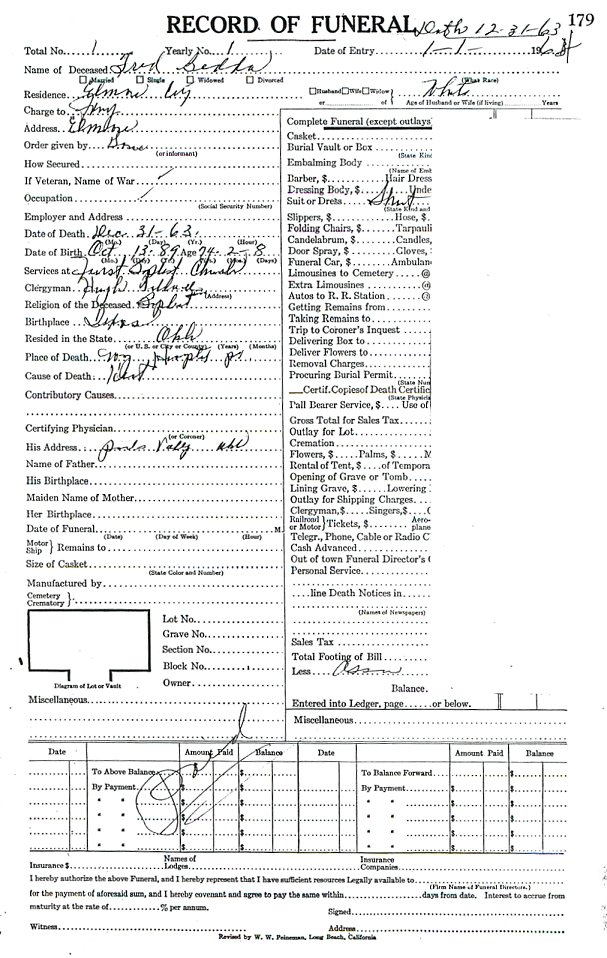 RECORD OF FUNERAL Death 12-31-63 179
Total No. 1 Yearly No. 1 Date of Entry 1-1- 1964
Name of Deceased Fred
Married Single Widowed Divorced
(What Race)
Residence Elmore City Husband Wife Widow White
or of Age of Husband or Wife (if living) Years
Charge to
Address Elmore
Order given by
(or informant)
How Secured
If Veteran, Name of War
Occupation
(Social Security Number)
Employer and Address
Date of Death Dec. 31-63.
(Mo.) (Day) (Yr.) (Hour)
Date of Birth Oct 13-89 Age 74-2-18
(Mo.) (Day) (Yr.) (Yrs.) (Months) (Days)
Services at First Baptist Church
Clergyman Hugh
(Address)
Religion of the Deceased Baptist
Birthplace Texas
Resided in the State Okla
(or U.S. or City or County) (Years) (Months)
Place of Death Hospital
Cause of Death
Contributory Causes
Certifying Physician
(or Coroner)
His Address Pauls Valley Okla
Name of Father
His Birthplace
Maiden Name of Mother
Her Birthplace
Date of Funeral M
(Date) (Day of Week) (Hour)
Motor
Ship } Remains to
Size of Casket
(State Color and Number)
Manufactured by
Cemetery
Crematory }
Lot No.
Grave No.
Section No.
Block No.
Owner
Diagram of Lot or Vault
Miscellaneous
Complete Funeral (except outlays
Casket
Burial Vault or Box
(State Kind
Embalming Body
(Name of Emb
Barber, $ Hair Dress
Dressing Body, $ Unde
Suit or Dress
(State Kind and
Slippers, $ Hose, $
Folding Chairs, $ Tarpauli
Candelabrum, $ Candles,
Door Spray, $ Gloves,
Funeral Car, $ Ambulan
Limousines to Cemetery @
Extra Limousines @
Autos to R. R. Station @
Getting Remains from
Taking Remains to
Trip to Coroner's Inquest
Delivering Box to
Deliver Flowers to
Removal Charges
Procuring Burial Permit
(State Num
Certif. Copies of Death Certific
(State Physicia
Pall Bearer Service, $ Use of
Gross Total for Sales Tax
Outlay for Lot
Cremation
Flowers, $ Palms, $ M
Rental of Tent, $ of Tempora
Opening of Grave or Tomb
Lining Grave, $ Lowering
Outlay for Shipping Charges
Clergyman, $ Singers, $
Railroad
or Motor } Tickets, $ Aero-
plane
Telegr., Phone, Cable or Radio C
Cash Advanced
Out of town Funeral Director's
Personal Service
line Death Notices in
(Names of Newspapers)
Sales Tax
Total Footing of Bill
Less
Balance.
Entered into Ledger, page or below.
Miscellaneous
Date Amount Paid Balance Date Amount Paid Balance
To Above Balance $ $ To Balance Forward $
By Payment $ $ By Payment $ $
" " $ $ " " $ $
" " $ $ " " $ $
" " $ $ " " $ $
" " $ $ " " $ $
Insurance $ Names of
Lodges Insurance
Companies
I hereby authorize the above Funeral, and I hereby represent that I have sufficient resources Legally available to
(Firm Name of Funeral Director.)
for the payment of aforesaid sum, and I hereby covenant and agree to pay the same within days from date. Interest to accrue from
maturity at the rate of % per annum. Signed
Witness Address
Revised by W. W. Feineman, Long Beach, California